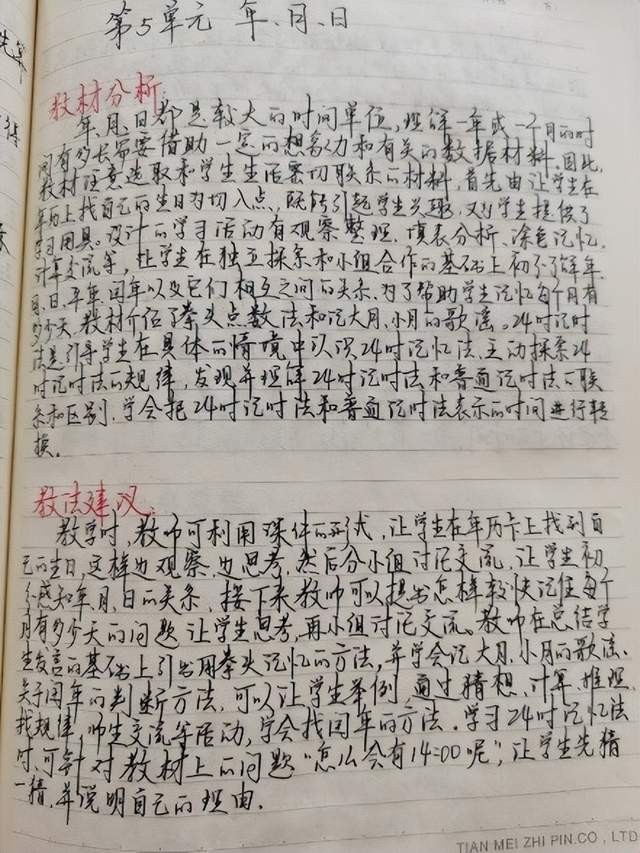 第5单元 年、月、日
教材分析:
年、月、日都是较大的时间单位,理解一年或一个月的时
间有多长需要借助一定的想象力和有关的数据材料。因此,
教材注意选取和学生生活密切联系的材料,首先由让学生在
年历上找自己的生日为切入点,既能引起学生兴趣,又为学生提供了
学习用具。设计的学习活动有观察整理、填表分析、涂色记忆、
计算交流等,让学生在独立探索和小组合作的基础上初步了解年、
月、日、平年、闰年以及它们相互之间的关系。为了帮助学生记忆每个月有
多少天,教材介绍了拳头点数法和记大月、小月的歌谣。24时记时
法是引导学生在具体的情境中认识24时记忆法,主动探索24
时记时法的规律,发现并理解24时记时法和普通记时法的联
系和区别,学会把24时记时法和普通记时法表示的时间进行转
换。
教法建议:
教学时,教师可利用课件的形式,让学生在年历卡上找到自
己的生日,这样边观察,边思考,然后分小组讨论交流,让学生初
步感知年、月、日的关系,接下来教师可以提出怎样较快记住每个
月有多少天的问题让学生思考,再小组讨论交流。教师在总结学
生发言的基础上引出用拳头记忆的方法,并学会记大月、小月的歌谣。
关于闰年的判断方法,可以让学生举例,通过猜想、计算、推理、
找规律,师生交流等活动,学会找闰年的方法。学习24时记忆法
时,可针对教材上的问题“怎么会有14:00呢”,让学生先猜
一猜,并说明自己的理由。
TIAN MEI ZHI PIN.CO., LTD